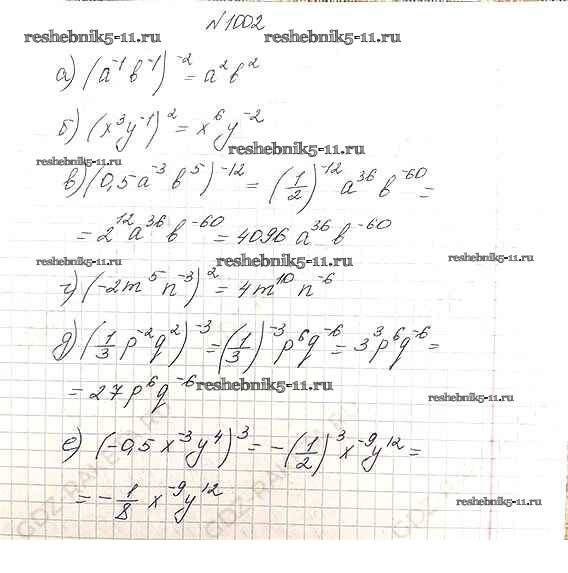 №1002
reshebnik5-11.ru reshebnik5-11.ru
а) (a⁻¹b⁻¹)⁻² = a²b²
б) (x³y⁻¹)² = x⁶y⁻²
reshebnik5-11.ru
reshebnik5-11.ru
в) (0,5a⁻³b⁵)⁻¹² = (1/2)⁻¹² a³⁶ b⁻⁶⁰ =
= 2¹²a³⁶b⁻⁶⁰ = 4096 a³⁶ b⁻⁶⁰
reshebnik5-11.ru reshebnik5-11.ru reshebnik5-11.ru
г) (-2m⁵n⁻³)² = 4m¹⁰n⁻⁶
д) (1/3 p⁻²q²)⁻³ = (1/3)⁻³ p⁶q⁻⁶ = 3³p⁶q⁻⁶ =
= 27p⁶q⁻⁶
reshebnik5-11.ru reshebnik5-11.ru
е) (-0,5x⁻³y⁴)³ = -(1/2)³x⁻⁹y¹² =
= -1/8 x⁻⁹y¹²
reshebnik5-11.ru